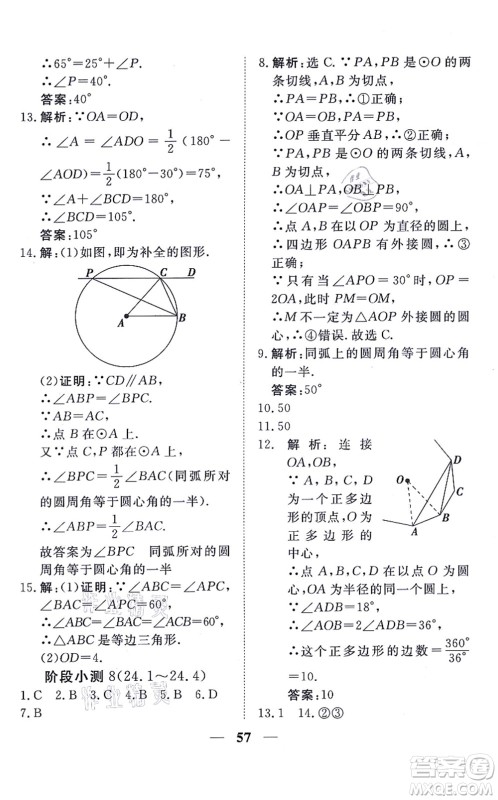 ∴65°=25°+∠P.
∴∠P=40°.
答案:40°
13.解析:∵OA=OD,
∴∠A=∠ADO=1/2(180°-
∠AOD)=1/2(180°-30°)=75°,
∵∠A+∠BCD=180°,
∴∠BCD=105°.
答案:105°
14.解:(1)如图,即为补全的图形.
P C D
A B
(2)证明:∵CD∥AB,
∴∠ABP=∠BPC.
∵AB=AC,
∴点 B 在⊙A 上.
又∵点 C,P 都在⊙A 上,
∴∠BPC=1/2∠BAC(同弧所对
的圆周角等于圆心角的一半).
∴∠ABP=1/2∠BAC.
故答案为∠BPC 同弧所对的
圆周角等于圆心角的一半
15.解:(1)证明:∵∠ABC=∠APC,
∠BAC=∠BPC,∠APC=
∠CPB=60°,
∴∠ABC=∠BAC=60°.
∴△ABC 是等边三角形.
(2)OD=4.
阶段小测 8(24.1~24.4)
1.C 2.B 3.C 4.B 5.B 6.D
7.B
8.解析:选 C.∵PA,PB 是⊙O 的两
条切线,A,B 为切点,
∴PA=PB,∴①正确;
∵OA=OB,PA=PB,
∴OP 垂直平分 AB,∴②正确;
∵PA,PB 是⊙O 的两条切线,A,
B 为切点,
∴OA⊥PA,OB⊥PB,
∴∠OAP=∠OBP=90°,
∴点 A,B 在以 OP 为直径的圆上,
∴四边形 OAPB 有外接圆,∴③
正确;
∵只有当∠APO=30°时,OP=
2OA,此时 PM=OM,
∴M 不一定为△AOP 外接圆的圆
心,∴④错误.故选 C.
9.解析:同弧上的圆周角等于圆心角
的一半.
答案:50°
10.50
11.50
12. 解析:连接
OA,OB,
∵A,B,C,D
为一个正多边
形的顶点,O 为
正多边形的
中心,
D
O C
B
A
∴点 A,B,C,D 在以点 O 为圆心,
OA 为半径的同一个圆上.
∵∠ADB=18°,
∴∠AOB=2∠ADB=36°,
∴这个正多边形的边数=360°/36°
=10.
答案:10
13.1 14.②③
57
作业精灵
作业精灵
答案圈
MXQE.COM